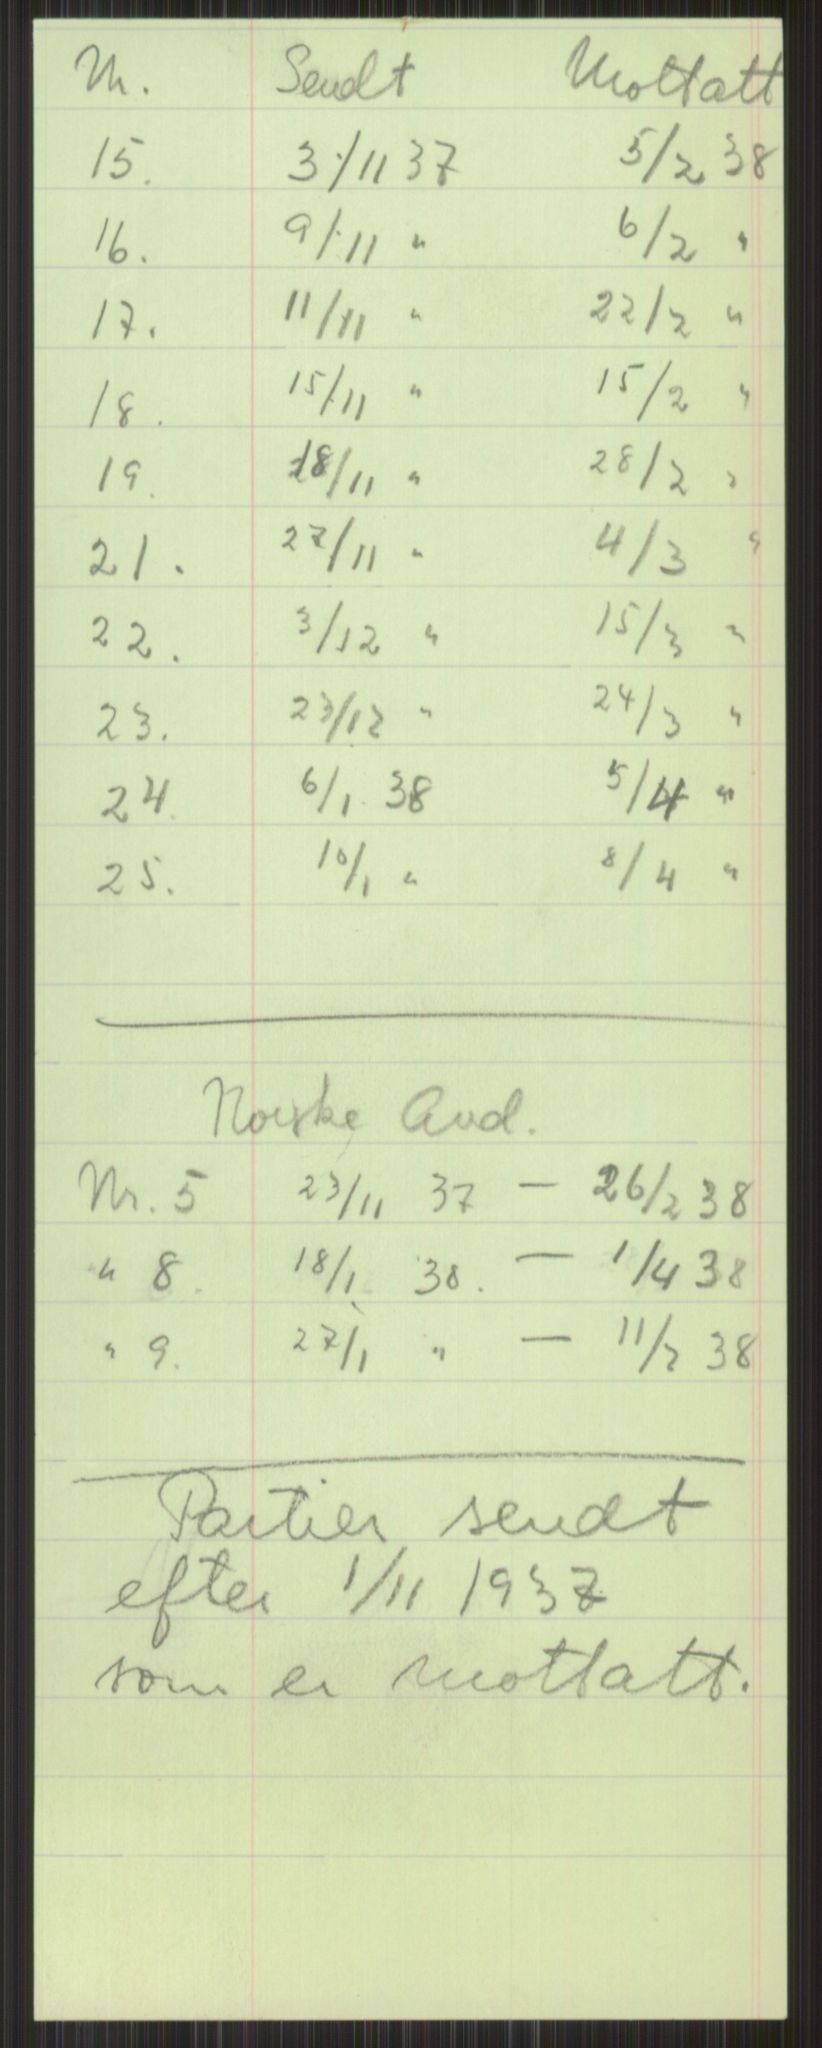 Nr. Sendt Mottatt
15. 3/11 37 5/2 38
16. 9/11 " 6/2 "
17. 11/11 " 22/2 "
18. 15/11 " 15/2 "
19. 18/11 " 28/2 "
21. 27/11 " 4/3 "
22. 3/12 " 15/3 "
23. 23/12 " 24/3 "
24. 6/1 38 5/4 "
25. 10/1 " 8/4 "
Norske Avd.
Nr. 5 23/11 37 — 26/2 38
" 8. 18/1 38. — 1/4 38
" 9. 27/1 " — 11/2 38
Partier sendt
efter 1/11 1937
som er mottatt.